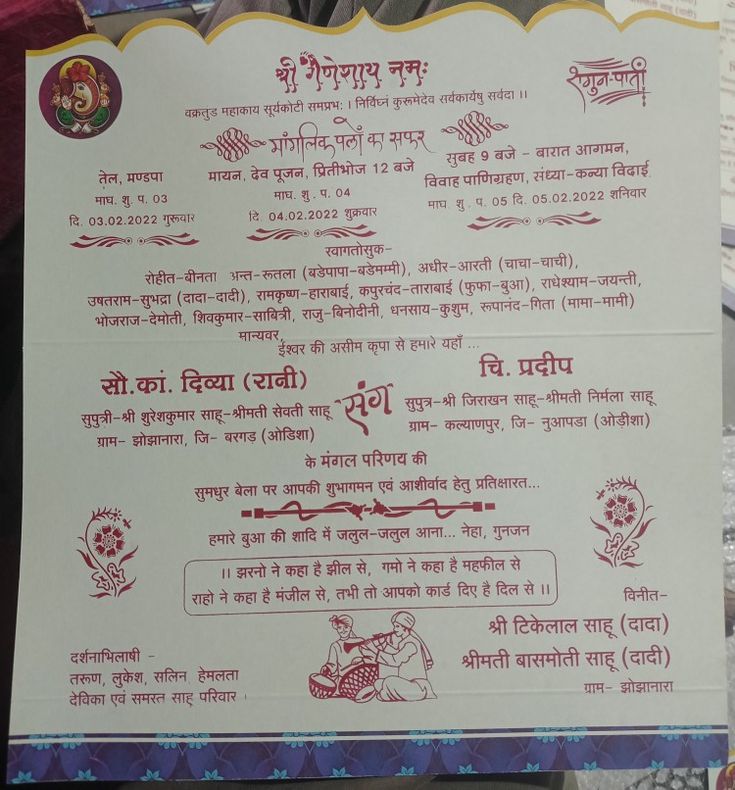 श्री गणेशाय नमः
शगुन-पाती
वक्रतुड महाकाय सूर्यकोटी समप्रभः । निर्विघ्नं कुरूमेदेव सर्वकार्येषु सर्वदा ।।
मांगलिक पलों का सफर
तेल, मण्डपा
माघ. शु . प. 03
दि. 03.02.2022 गुरूवार
मायन, देव पूजन, प्रितीभोज 12 बजे
माघ. शु . प. 04
दि. 04.02.2022 शुक्रवार
सुबह 9 बजे - बारात आगमन,
विवाह पाणिग्रहण, संध्या-कन्या विदाई
माघ. शु . प. 05 दि. 05.02.2022 शनिवार
स्वागतोसुक-
रोहीत-बीनता अन्त-रूतला (बडेपापा-बडेमम्मी), अधीर-आरती (चाचा-चाची),
उषतराम-सुभद्रा (दादा-दादी), रामकृष्ण-हाराबाई, कपुरचंद-ताराबाई (फुफा-बुआ), राधेश्याम-जयन्ती,
भोजराज-देमोती, शिवकुमार-साबित्री, राजु-बिनोदीनी, धनसाय-कुशुम, रूपानंद-गिता (मामा-मामी)
मान्यवर,
ईश्वर की असीम कृपा से हमारे यहाँ ...
सौ.कां. दिव्या (रानी)
सुपुत्री-श्री शुरेशकुमार साहू-श्रीमती सेवती साहू
ग्राम- झोझानारा, जि- बरगड़ (ओडिशा)
संग
चि. प्रदीप
सुपुत्र-श्री जिराखन साहू-श्रीमती निर्मला साहू
ग्राम- कल्याणपुर, जि- नुआपडा (ओड़ीशा)
के मंगल परिणय की
सुमधुर बेला पर आपकी शुभागमन एवं आशीर्वाद हेतु प्रतिक्षारत...
हमारे बुआ की शादि में जलुल-जलुल आना... नेहा, गुनजन
।। झरनो ने कहा है झील से, गमो ने कहा है महफील से
राहो ने कहा है मंजील से, तभी तो आपको कार्ड दिए है दिल से ।।
विनीत-
श्री टिकेलाल साहू (दादा)
श्रीमती बासमोती साहू (दादी)
ग्राम- झोझानारा
दर्शनाभिलाषी -
तरूण, लुकेश, सलिन हेमलता
देविका एवं समस्त साहू परिवार ।